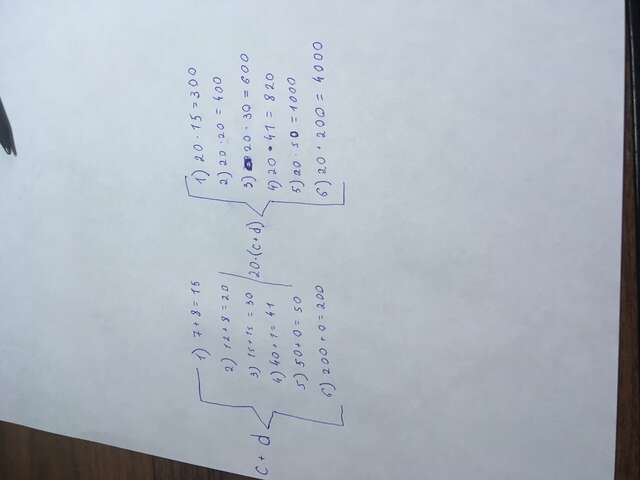 c + d
1) 7+8=15
2) 12+8=20
3) 15+15=30
4) 40+1=41
5) 50+0=50
6) 200+0=200
20·(c+d)
1) 20·15=300
2) 20·20=400
3) 20·30=600
4) 20·41=820
5) 20·50=1000
6) 20·200=4000